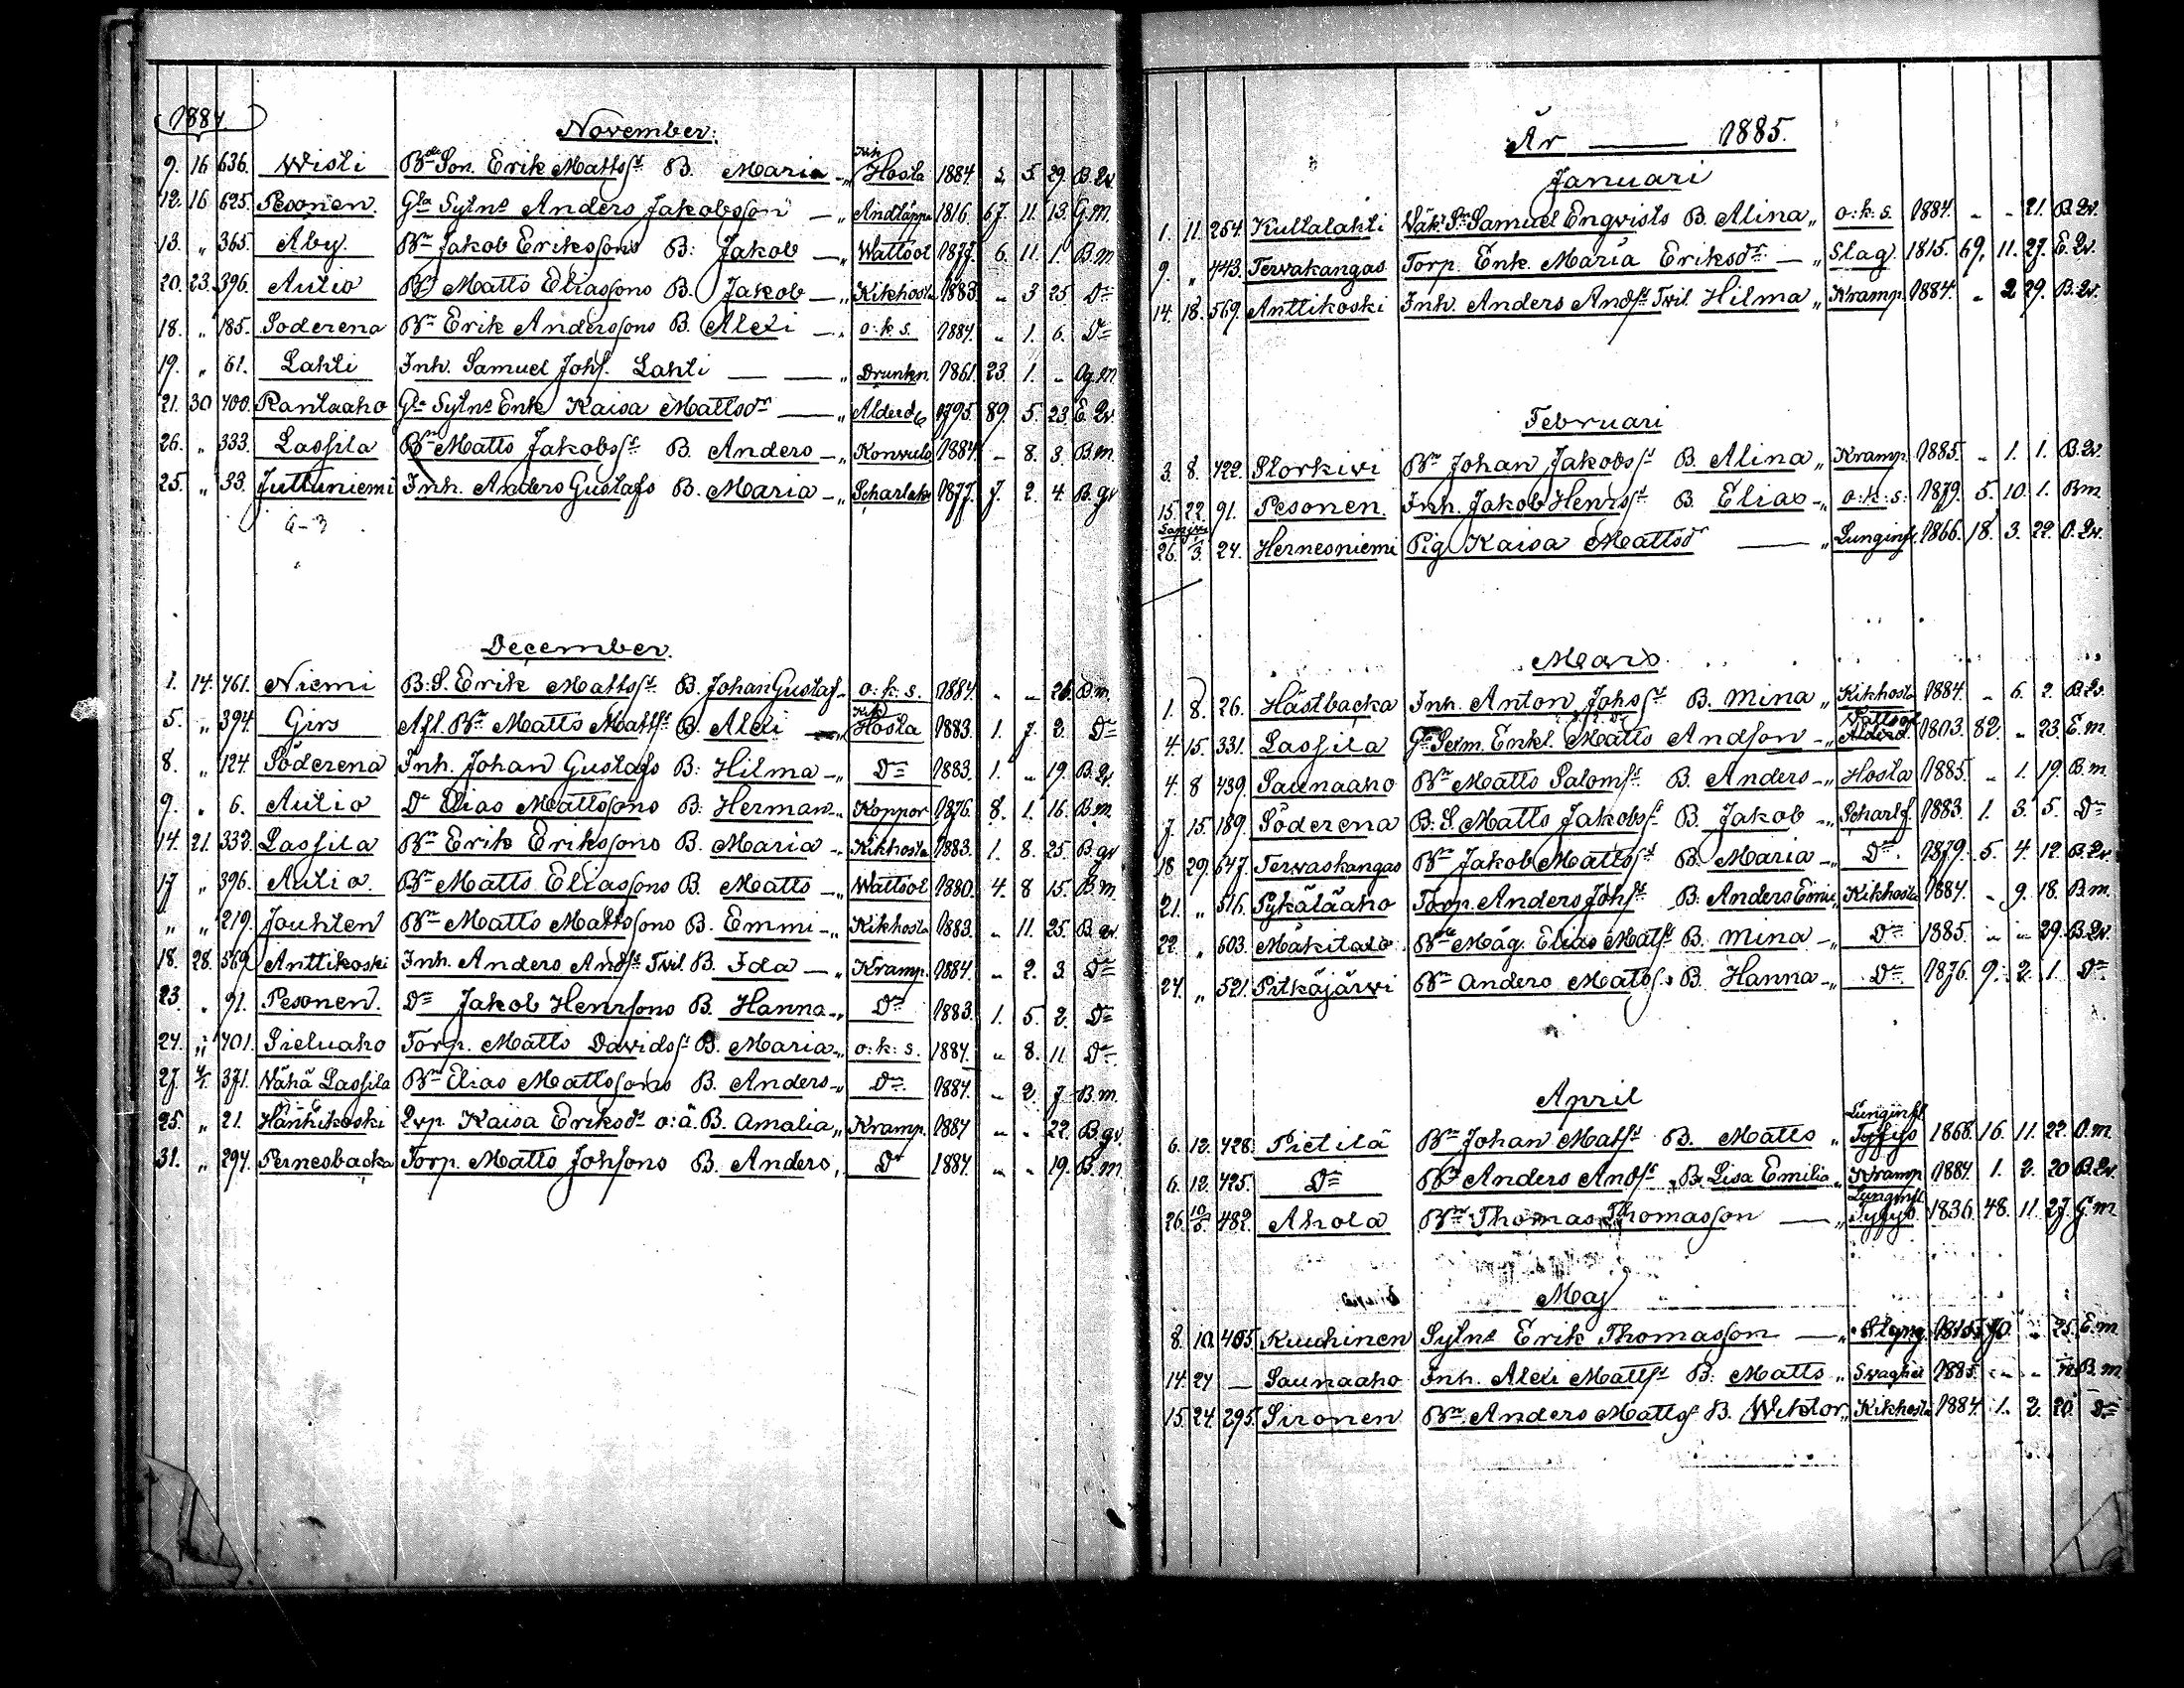 1884.
November:
9. 16 636. Wisti Bde Son. Erik Mattsst B. Maria Kik Hosta 1884 5. 29. B. Qv.
12. 16 625. Pesonen. Gla Sytns Anders Jakobsson — „ Andtäppa 1816. 67. 11. 13. G. m.
13. „ 365. Åby. Bn Jakob Erikssons B: Jakob — „ Wattsot 1877. 6. 11. 1. B. m.
20. 23. 396. Autio Bn Matts Eliassons B. Jakob — „ Kikhosta 1883. „ 3 25. Do
18. „ 185. Söderena Bn Erik Anderssons B. Alexi — „ o: k. s. 1884. „ 1. 6. Do
19. „ 61. Lahti Inh. Samuel Johs. Lahti — — „ Drunkn. 1861. 23. 1. „ Og. m.
21. 30 400. Rantaaho Gla Sytns Enk Kaisa Mattsdr — „ Alderd. 1795. 89. 5. 23. E. Qv.
26. „ 333. Lassila Bn Matts Jakobsst B. Anders — „ Konvuls. 1884. — 8. 3. B. m.
25. „ 33. Juttuniemi Inh. Anders Gustafs B. Maria — „ Scharlak. 1877. 7. 2. 4. B. qv
December.
1. 14. 461. Niemi B. S. Erik Mattsst B. Johan Gustaf — o: k. s. 1884. „ — 26. B. m.
5. „ 394. Girs Afl. Bn Matts Mattsst B. Alexi — „ Kik Hosta 1883. 1. 7. 2. Do
8. „ 124. Söderena Inh. Johan Gustafs B: Hilma — „ Do 1883. 1. „ 19. B. Qv.
9. „ 6. Autio Do Elias Mattssons B: Herman — „ Koppor 1876. 8. 1. 16. B. m.
14. 21. 332. Lassila Bn Erik Erikssons B. Maria — „ Kikhosta 1883. 1. 8. 25. B. qv
17 „ 396. Autio. Bn Matts Eliassons B. Matts — „ Wattsot 1880. 4. 8 15. B. m.
„ „ 219. Jouhten Bn Matts Mattssons B. Emmi — „ Kikhosta 1883. „ 11. 25. B. Qv.
18. 28. 569. Anttikoski Inh. Anders Andsst Twil. B. Ida — „ Kramp. 1884. „ 2. 3. Do
23. „ 91. Pesonen. Do Jakob Henrssons B. Hanna — „ Do 1883. 1. 5. 2. Do
24. „ 401. Sieluaho Torp. Matts Davidsst B. Maria — „ o: k: s. 1884. „ 8. 11. Do
27. 371. Vähä Lassila Bn Elias Mattssons B. Anders — „ Do 1884. „ 2. 7 B. m.
25. „ 21. Hänhikoski Qvp. Kaisa Eriksdr o: ä. B. Amalia „ Kramp. 1884 „ „ 22. B. qv.
31. „ 294. Pernesbacka Torp. Matts Johssons B. Anders „ Do 1884. „ „ 19. B. m.
År — 1885.
Januari
1. 11. 254. Kultalahti Samuel Enqvists B. Alina „ o: k. s. 1884. „ „ 21. B. Qv.
9. „ 443. Terwakangas Torp. Enk. Maria Eriksdr — „ Slag. 1815. 69. 11. 27. E. Qv.
14. 18. 569. Anttikoski Inh. Anders Andsst Twil. Hilma „ Kramp. 1884. „ 2 29. B. Qv.
Februari
3. 8. 422. Storkivi Bn Johan Jakobsst B. Alina „ Kramp. 1885. „ 1. 1. B. Qv.
15. 22. 91. Pesonen. Inh. Jakob Henrsst B. Elias — „ o: k: s: 1879. 5. 10. 1. B m.
26. 1/3. 24. Hernesniemi Pig. Kaisa Mattsdr — „ Lunginfl. 1866. 18. 3. 22. O. Qv.
Mars.
1. 8. 26. Hästbacka Inh. Anton Johsst B. Mina „ Kikhosta 1884. „ 6. 2. B. Qv.
4. 15. 331. Lassila Enkl. Matts Andsson — „ Wattsot Alderd. 1803. 82. „ 23. E. m.
4. 8 439. Saunaaho Bn Matts Salomsst B. Anders — „ Hosta 1885. „ 1. 19. B. m.
7. 15. 189. Söderena B. S. Matts Jakobsst B. Jakob — „ Scharlf. 1883. 1. 3. 5. Do
18. 29. 647. Terwaskangas Bn Jakob Mattsst B. Maria — „ Do. 1879. 5. 4. 12. B. Qv
21. „ 516. Pykäläaho Torp. Anders Johsst B. Anders Emil „ Kikhosta 1884. „ 9. 18. B. m.
22. „ 603. Mäkitalo Bde Måg. Elias Matsst B. Mina — „ Do 1885. „ „ 29. B. Qv.
24. „ 521. Pitkäjärwi Bn Anders Mattss B. Hanna — „ Do 1876. 9. 2. 1. Do
April
6. 12. 428. Pietilä Bn Johan Matsst B. Matts „ Lunginfl. Tyfys 1868. 16. 11. 22. O. m.
6. 12. 425. Do Bn Anders Andsst B. Lisa Emilia „ Kramp 1884. 1. 2. 20 B. Qv.
26. 10/5. 482. Ahola Bn Thomas Thomasson — „ Lunginfl. Tyfys. 1836. 48. 11. 27. G. m.
Maj
8. 10. 405. Kuuhinen Sytns Erik Thomasson — „ 1815. 70. „ 25. E. m.
14. 24 — Saunaaho Inh. Alexi Mattsst B. Matts „ Svaghet 1885. „ „ B. m.
15. 24. 295. Sironen Bn Anders Mattss B. Wiktor „ Kikhosta 1884. 1. 2. 20. Do